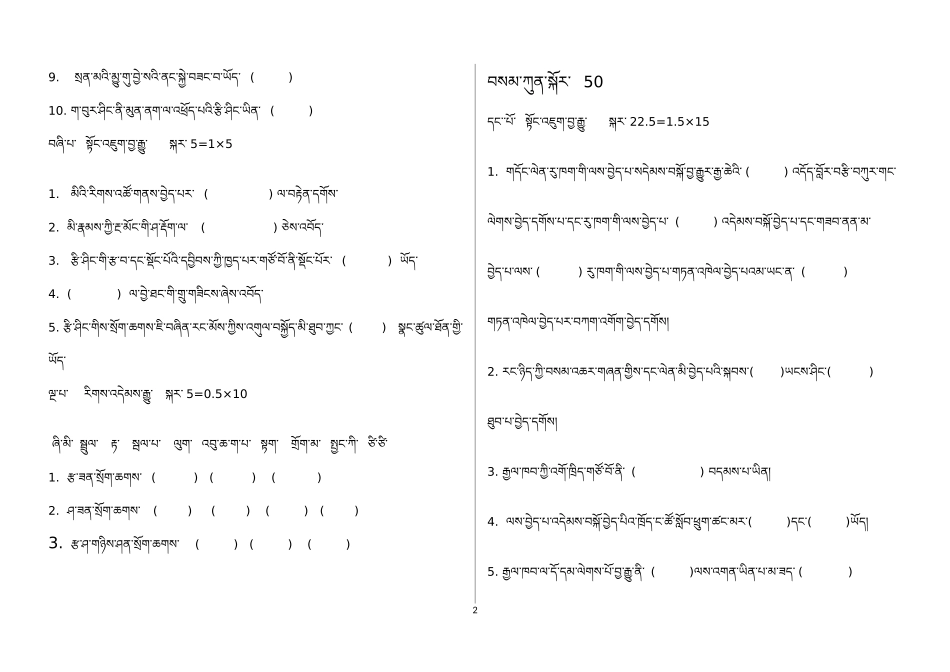 9. སྲན་མའི་མྱུ་གུ་བྱེ་སའི་ནང་སྐྱེ་བཟང་བ་ཡོད་ ( )
10. ག་བུར་ཤིང་ནི་མུན་ནག་ལ་འཕྲོད་པའི་རྩི་ཤིང་ཡིན་ ( )
བཞི་པ་ སྟོང་འཇུག་བྱ་རྒྱུ་ སྐར་ 5=1×5
1. མིའི་རིགས་འཚོ་གནས་བྱེད་པར་ ( ) ལ་བརྟེན་དགོས་
2. མི་རྣམས་ཀྱི་ཇ་མོང་གི་ཤ་རྡོག་ལ་ ( ) ཅེས་འབོད་
3. རྩི་ཤིང་གི་རྩ་བ་དང་སྡོང་པོའི་དབྱིབས་ཀྱི་ཁྱད་པར་གཙོ་བོ་ནི་སྡོང་པོར་ ( ) ཡོད་
4. ( ) ལ་བྱེ་ཐང་གི་གྲུ་གཟིངས་ཞེས་འབོད་
5. རྩི་ཤིང་གིས་སྲོག་ཆགས་ཇི་བཞིན་རང་མོས་ཀྱིས་འགུལ་བསྐྱོད་མི་ཐུབ་ཀྱང་ ( ) སྣང་ཚུལ་ཐོན་གྱི་
ཡོད་
ལྔ་པ་ རིགས་འདེམས་རྒྱུ་ སྐར་ 5=0.5×10
ཞི་མི་ སྦྲུལ་ རྟ་ སྦལ་པ་ ལུག་ འབུ་ཆ་ག་པ་ སྟག་ གྲོག་མ་ སྤྱང་ཀི་ ཙི་ཙི་
1. རྩྭ་ཟན་སྲོག་ཆགས་ ( ) ( ) ( )
2. ཤ་ཟན་སྲོག་ཆགས་ ( ) ( ) ( ) ( )
3. རྩྭ་ཤ་གཉིས་ཤན་སྲོག་ཆགས་ ( ) ( ) ( )
བསམ་ཀུན་སྐོར་ 50
དང་པོ་ སྟོང་འཇུག་བྱ་རྒྱུ་ སྐར་ 22.5=1.5×15
1. གདོང་ལེན་རུ་ཁག་གི་ལས་བྱེད་པ་སདེམས་བསྐོ་བྱ་རྒྱུར་རྒྱ་ཆེའི་ ( ) འདོད་བློར་བརྩི་བཀུར་གང་
ལེགས་བྱེད་དགོས་པ་དང་རུ་ཁག་གི་ལས་བྱེད་པ་ ( ) འདེམས་བསྐོ་བྱེད་པ་དང་གཟབ་ནན་མ་
བྱེད་པ་ལས་ ( ) རུ་ཁག་གི་ལས་བྱེད་པ་གཏན་འཁེལ་བྱེད་པའམ་ཡང་ན་ ( )
གཏན་འཁེལ་བྱེད་པར་བཀག་འགོག་བྱེད་དགོས།
2. རང་ཉིད་ཀྱི་བསམ་འཆར་གཞན་གྱིས་དང་ལེན་མི་བྱེད་པའི་སྐབས་( )ཡངས་ཤིང་( )
ཐུབ་པ་བྱེད་དགོས།
3. རྒྱལ་ཁབ་ཀྱི་འགོ་ཁྲིད་གཙོ་བོ་ནི་ ( ) བདམས་པ་ཡིན།
4. ལས་བྱེད་པ་འདེམས་བསྐོ་བྱེད་པིའ་ཁྲོད་ང་ཚོ་སློབ་ཕྲུག་ཚང་མར་( )དང་( )ཡོད།
5. རྒྱལ་ཁབ་ལ་དོ་དམ་ལེགས་པོ་བྱ་རྒྱུ་ནི་ ( )ལས་འགན་ཡིན་པ་མ་ཟད་( )
2